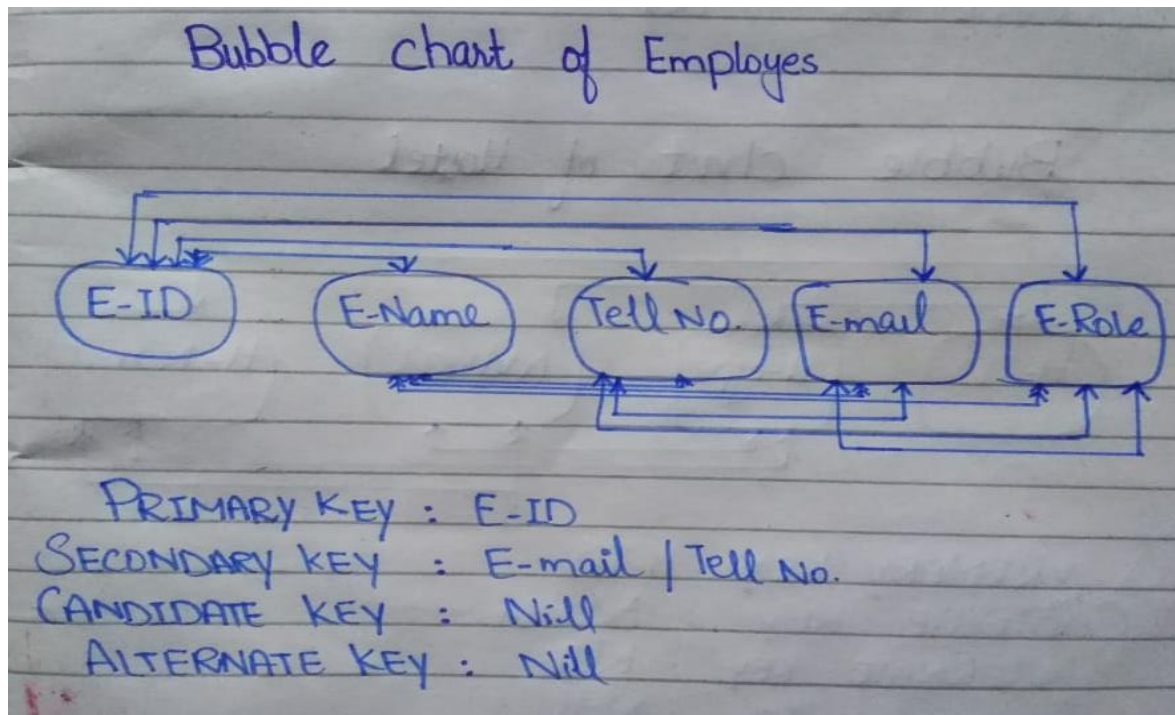 Bubble chart of Employes
Bubble chart of Hotel
E-ID E-Name Tell No. E-mail E-Role
PRIMARY KEY : E-ID
SECONDARY KEY : E-mail / Tell No.
CANDIDATE KEY : Nill
ALTERNATE KEY : Nill